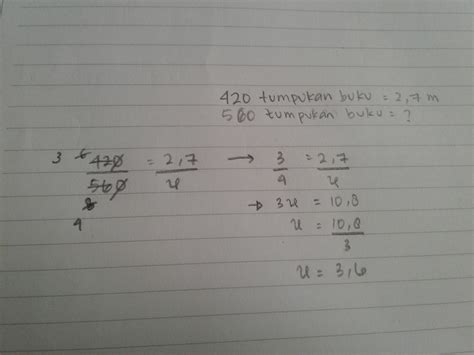 420 tumpukan buku = 2,7 m
560 tumpukan buku = ?
3 6 420/560 = 2,7/u → 3/4 = 2,7/u
8
4
→ 3u = 10,8
u = 10,8/3
u = 3,6